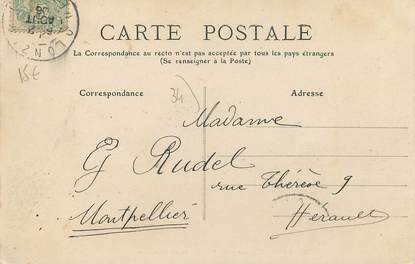 CARTE POSTALE
La Correspondance au recto n'est pas acceptée par tous les pays étrangers
(Se renseigner à la Poste)
Correspondance
Adresse
15€
34
Madame
G Rudel
rue Thérèse 9
Montpellier
Hérault
AOUT
06